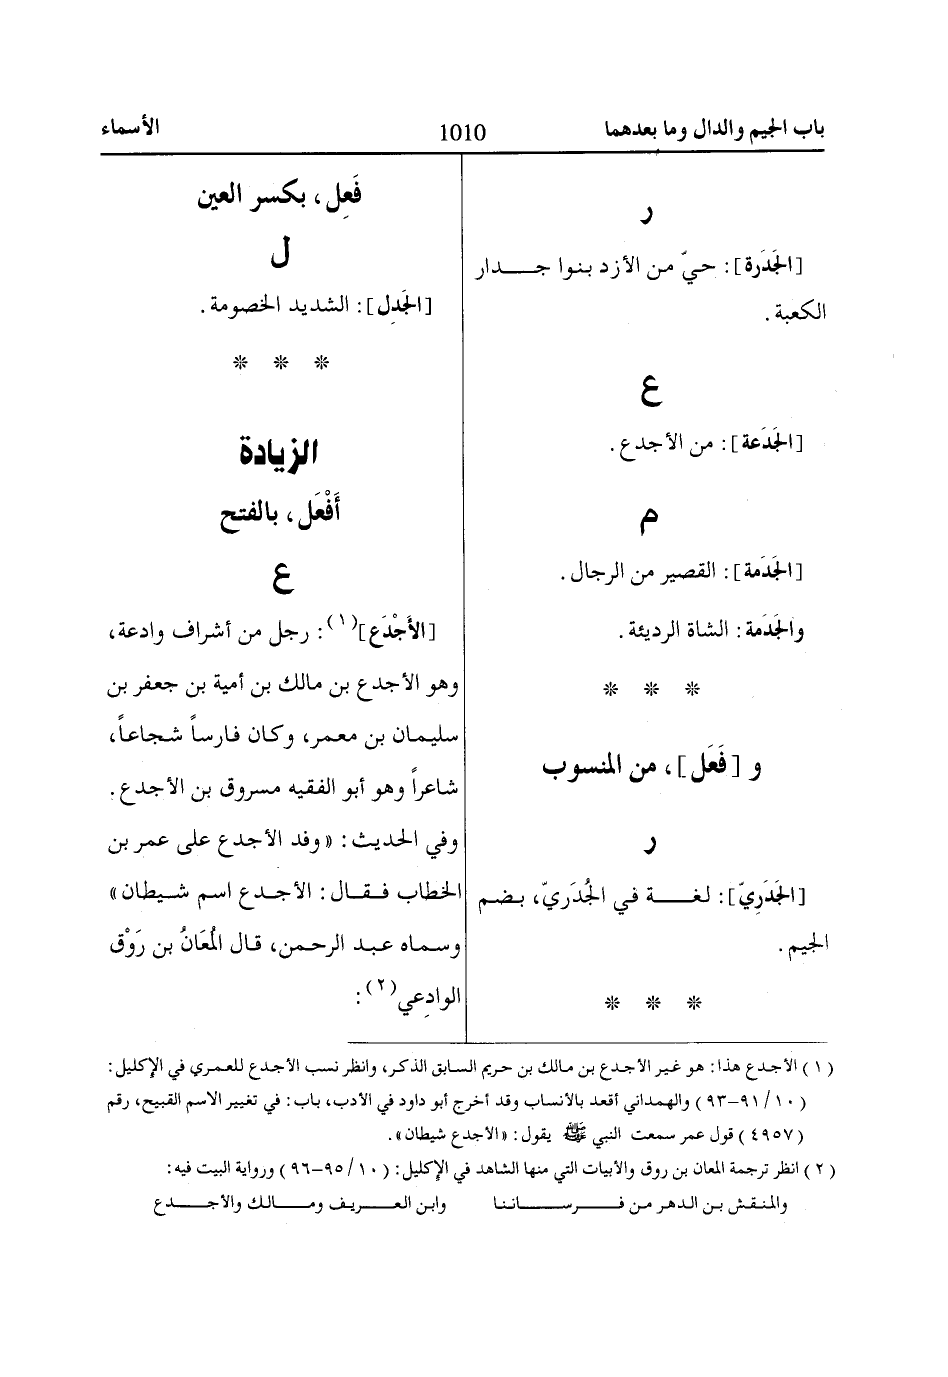 باب الجيم والدال وما بعدهما 1010 الأسماء
ر
[الجَدَرة]: حيّ من الأزد بنوا جدار
الكعبة.
ع
[الجَدَعة]: من الأجدع.
م
[الجَدَمة]: القصير من الرجال.
والجَدَمة: الشاة الرديئة.
* * *
و [فَعَل]، من المنسوب
ر
[الجَدَرِيّ]: لغة في الجُدَريّ، بضم
الجيم.
* * *
فَعِل، بكسر العين
ل
[الجَدِل]: الشديد الخصومة.
* * *
الزيادة
أَفْعَل، بالفتح
ع
[الأَجْدَع](١): رجل من أشراف وادعة،
وهو الأجدع بن مالك بن أمية بن جعفر بن
سليمان بن معمر، وكان فارساً شجاعاً،
شاعراً وهو أبو الفقيه مسروق بن الأجدع.
وفي الحديث: «وفد الأجدع على عمر بن
الخطاب فقال: الأجدع اسم شيطان»
وسماه عبد الرحمن، قال المُعَانُ بن رَوْق
الوادعِي(٢):
(١) الأجدع هذا: هو غير الأجدع بن مالك بن حريم السابق الذكر، وانظر نسب الأجدع للعمري في الإكليل:
(١٠/٩١-٩٣) والهمداني أقعد بالأنساب وقد أخرج أبو داود في الأدب، باب: في تغيير الاسم القبيح، رقم
(٤٩٥٧) قول عمر سمعت النبي ﷺ يقول: «الأجدع شيطان».
(٢) انظر ترجمة المعان بن روق والأبيات التي منها الشاهد في الإكليل: (١٠/٩٥-٩٦) ورواية البيت فيه:
والمنقش بن الدهر من فرساننا وابن العريف ومالك والأجدع